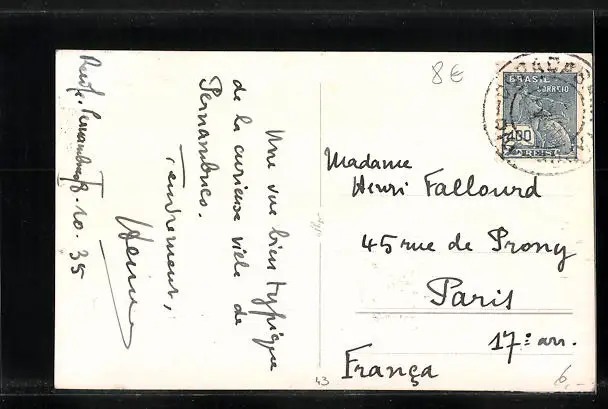 8€
BRASIL
CORREIO
400
REIS
Recife, Pernambuco, 8.10.35
Une vue bien typique
de la curieuse ville de
Pernambuco.
Tendrement,
Henri
Madame
Henri Fallourd
45 rue de Prony
Paris
17º arr.
França
43
6.-